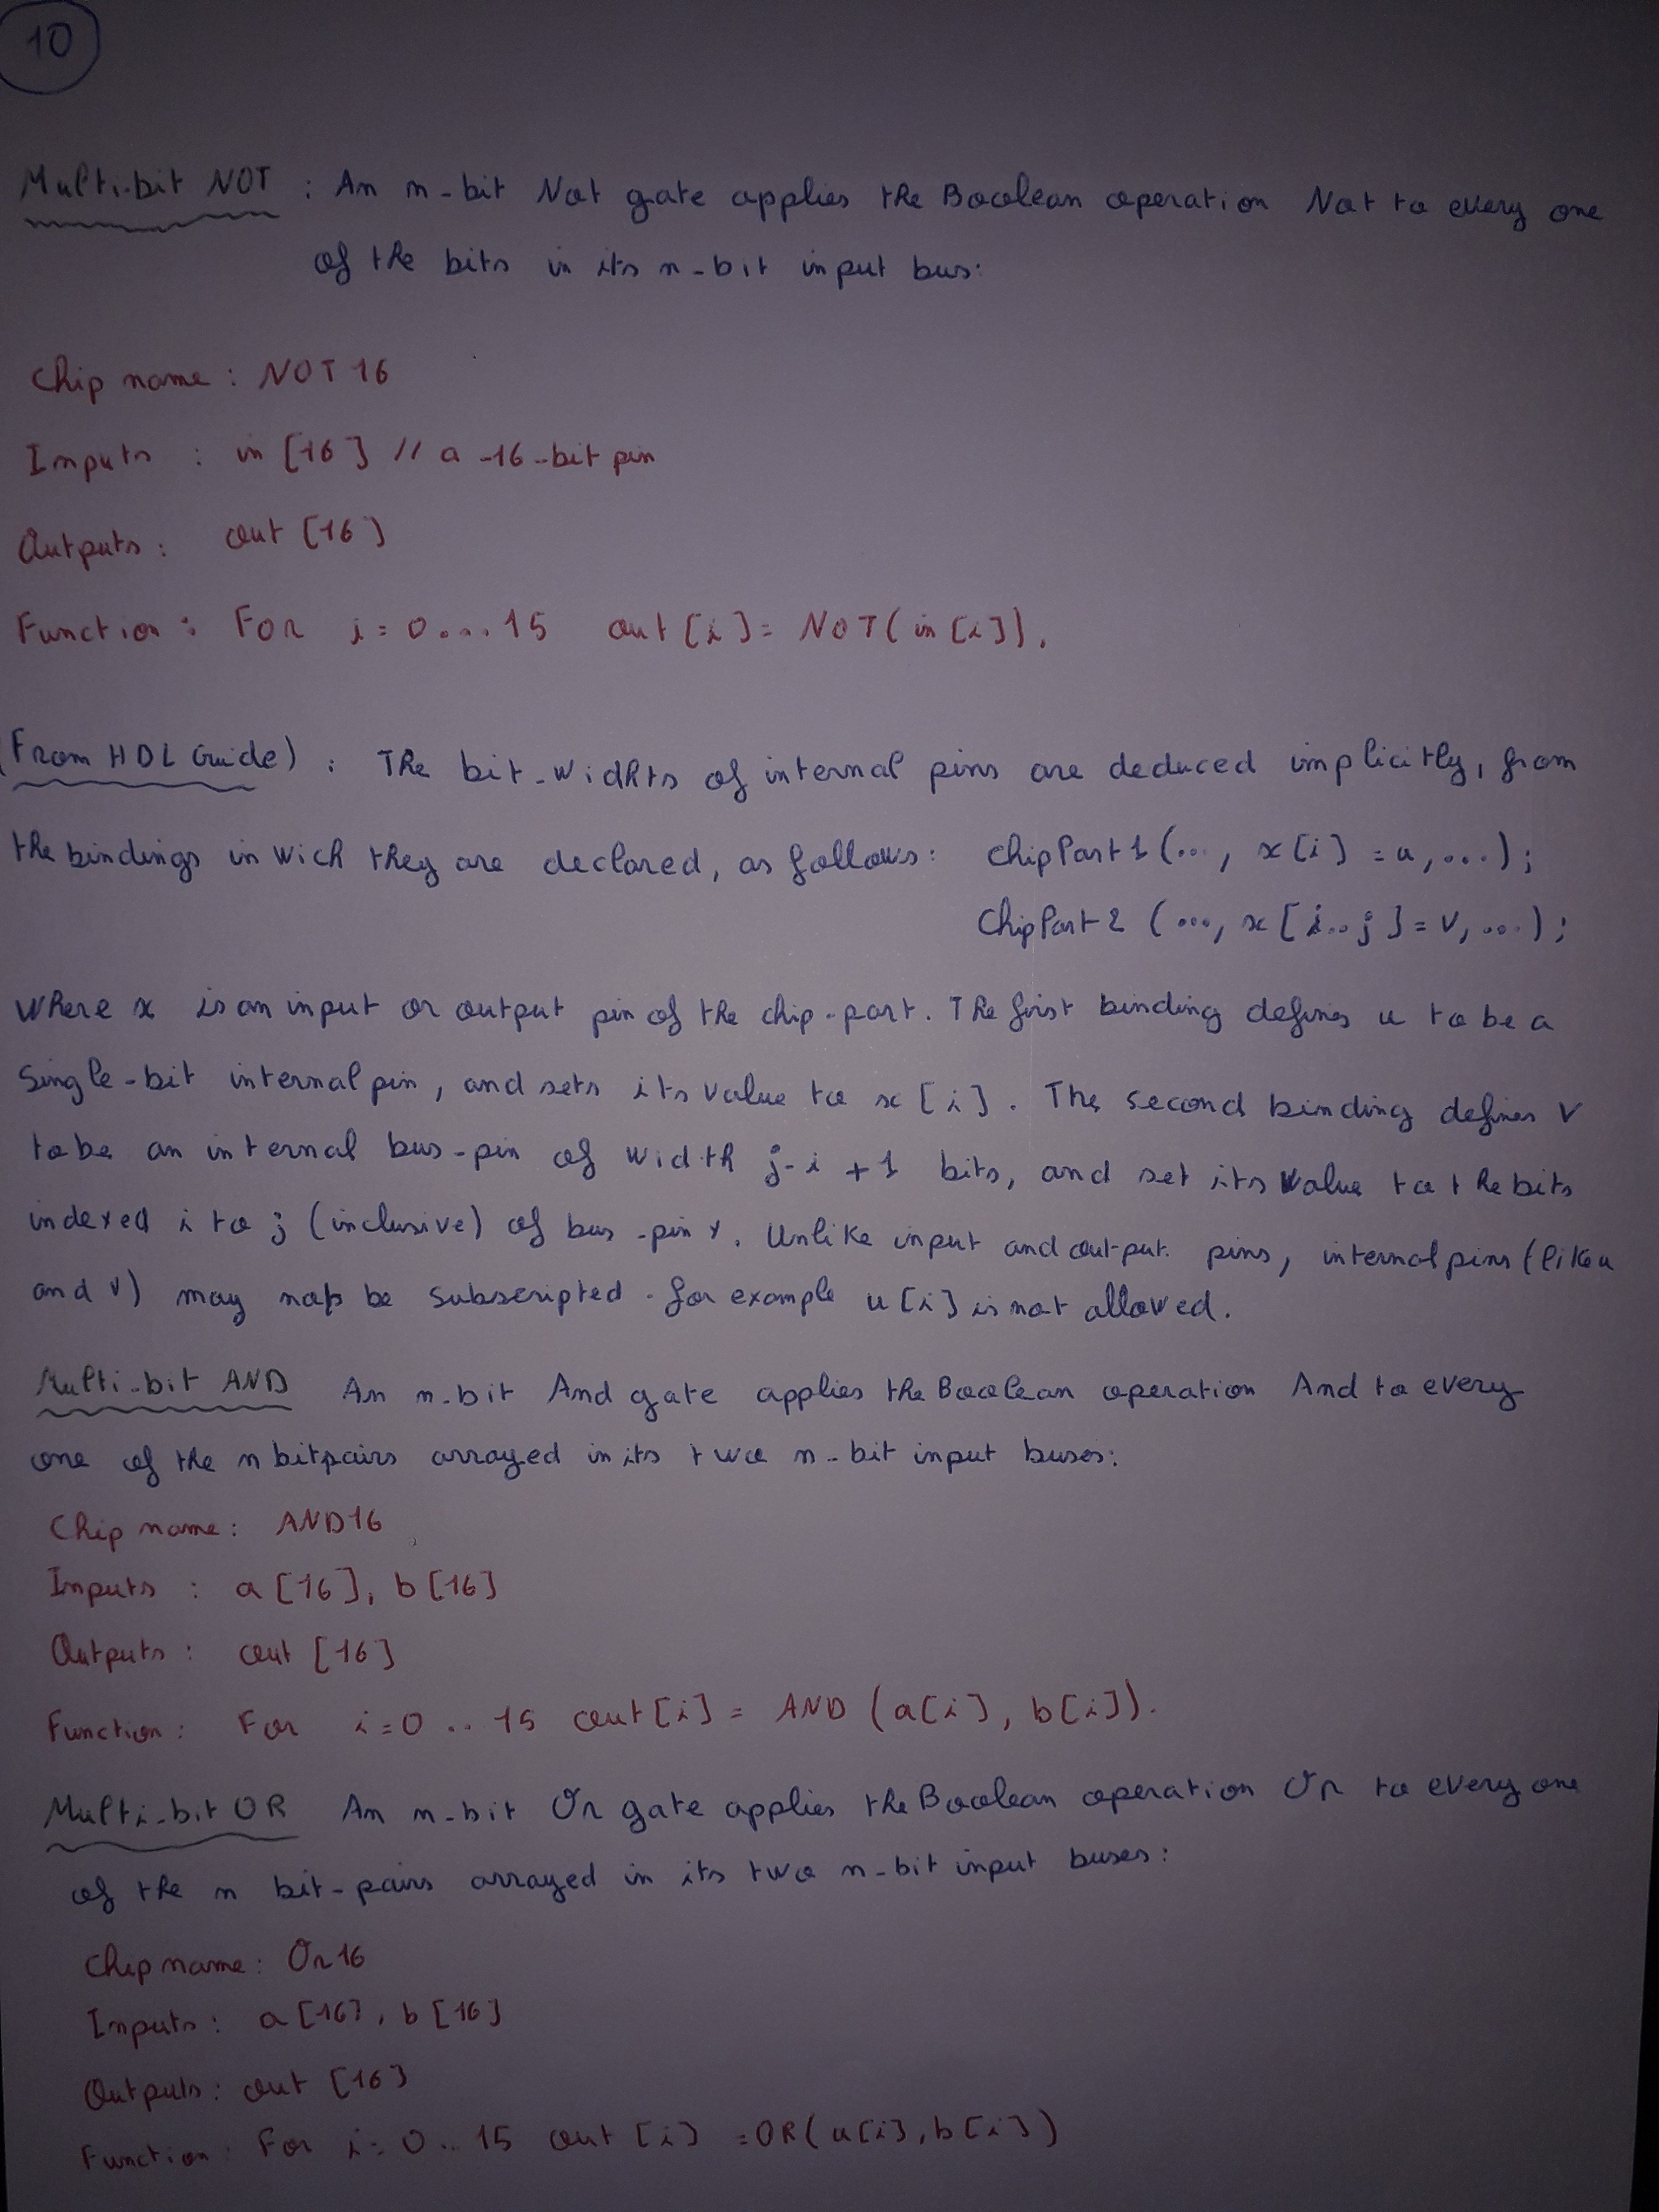 10
Multi-bit NOT : An n-bit Not gate applies the Boolean operation Not to every one
of the bits in its n-bit input bus:
Chip name : NOT16
Inputs : in [16] // a -16-bit pin
Outputs : out [16]
Function : For i = 0...15 out [i] = NOT(in[i]).
(From HDL Guide) : The bit-widhts of internal pins are deduced implicitly, from
the bindings in wich they are declared, as follows: chipPart1 (..., x[i] = u, ...);
ChipPart2 (..., x[i..j] = v, ...);
where x is an input or output pin of the chip-part. The first binding defines u to be a
Single-bit internal pin, and sets its value to x[i]. The second binding defines v
to be an internal bus-pin of width j-i+1 bits, and set its value to the bits
indexed i to j (inclusive) of bus-pin x. Unlike input and output pins, internal pins (like u
and v) may not be subscripted. for example u[i] is not allowed.
Multi-bit AND An n-bit And gate applies the Boolean operation And to every
one of the n bitpairs arrayed in its two n-bit input buses:
Chip name : AND16
Inputs : a[16], b[16]
Outputs : out [16]
Function : For i=0..15 out[i] = AND (a[i], b[i]).
Multi-bit OR An n-bit Or gate applies the Boolean operation Or to every one
of the n bit-pairs arrayed in its two n-bit input buses:
Chip name : Or16
Inputs : a[16], b[16]
Outputs : out [16]
Function : For i=0..15 out [i] = OR(a[i], b[i])